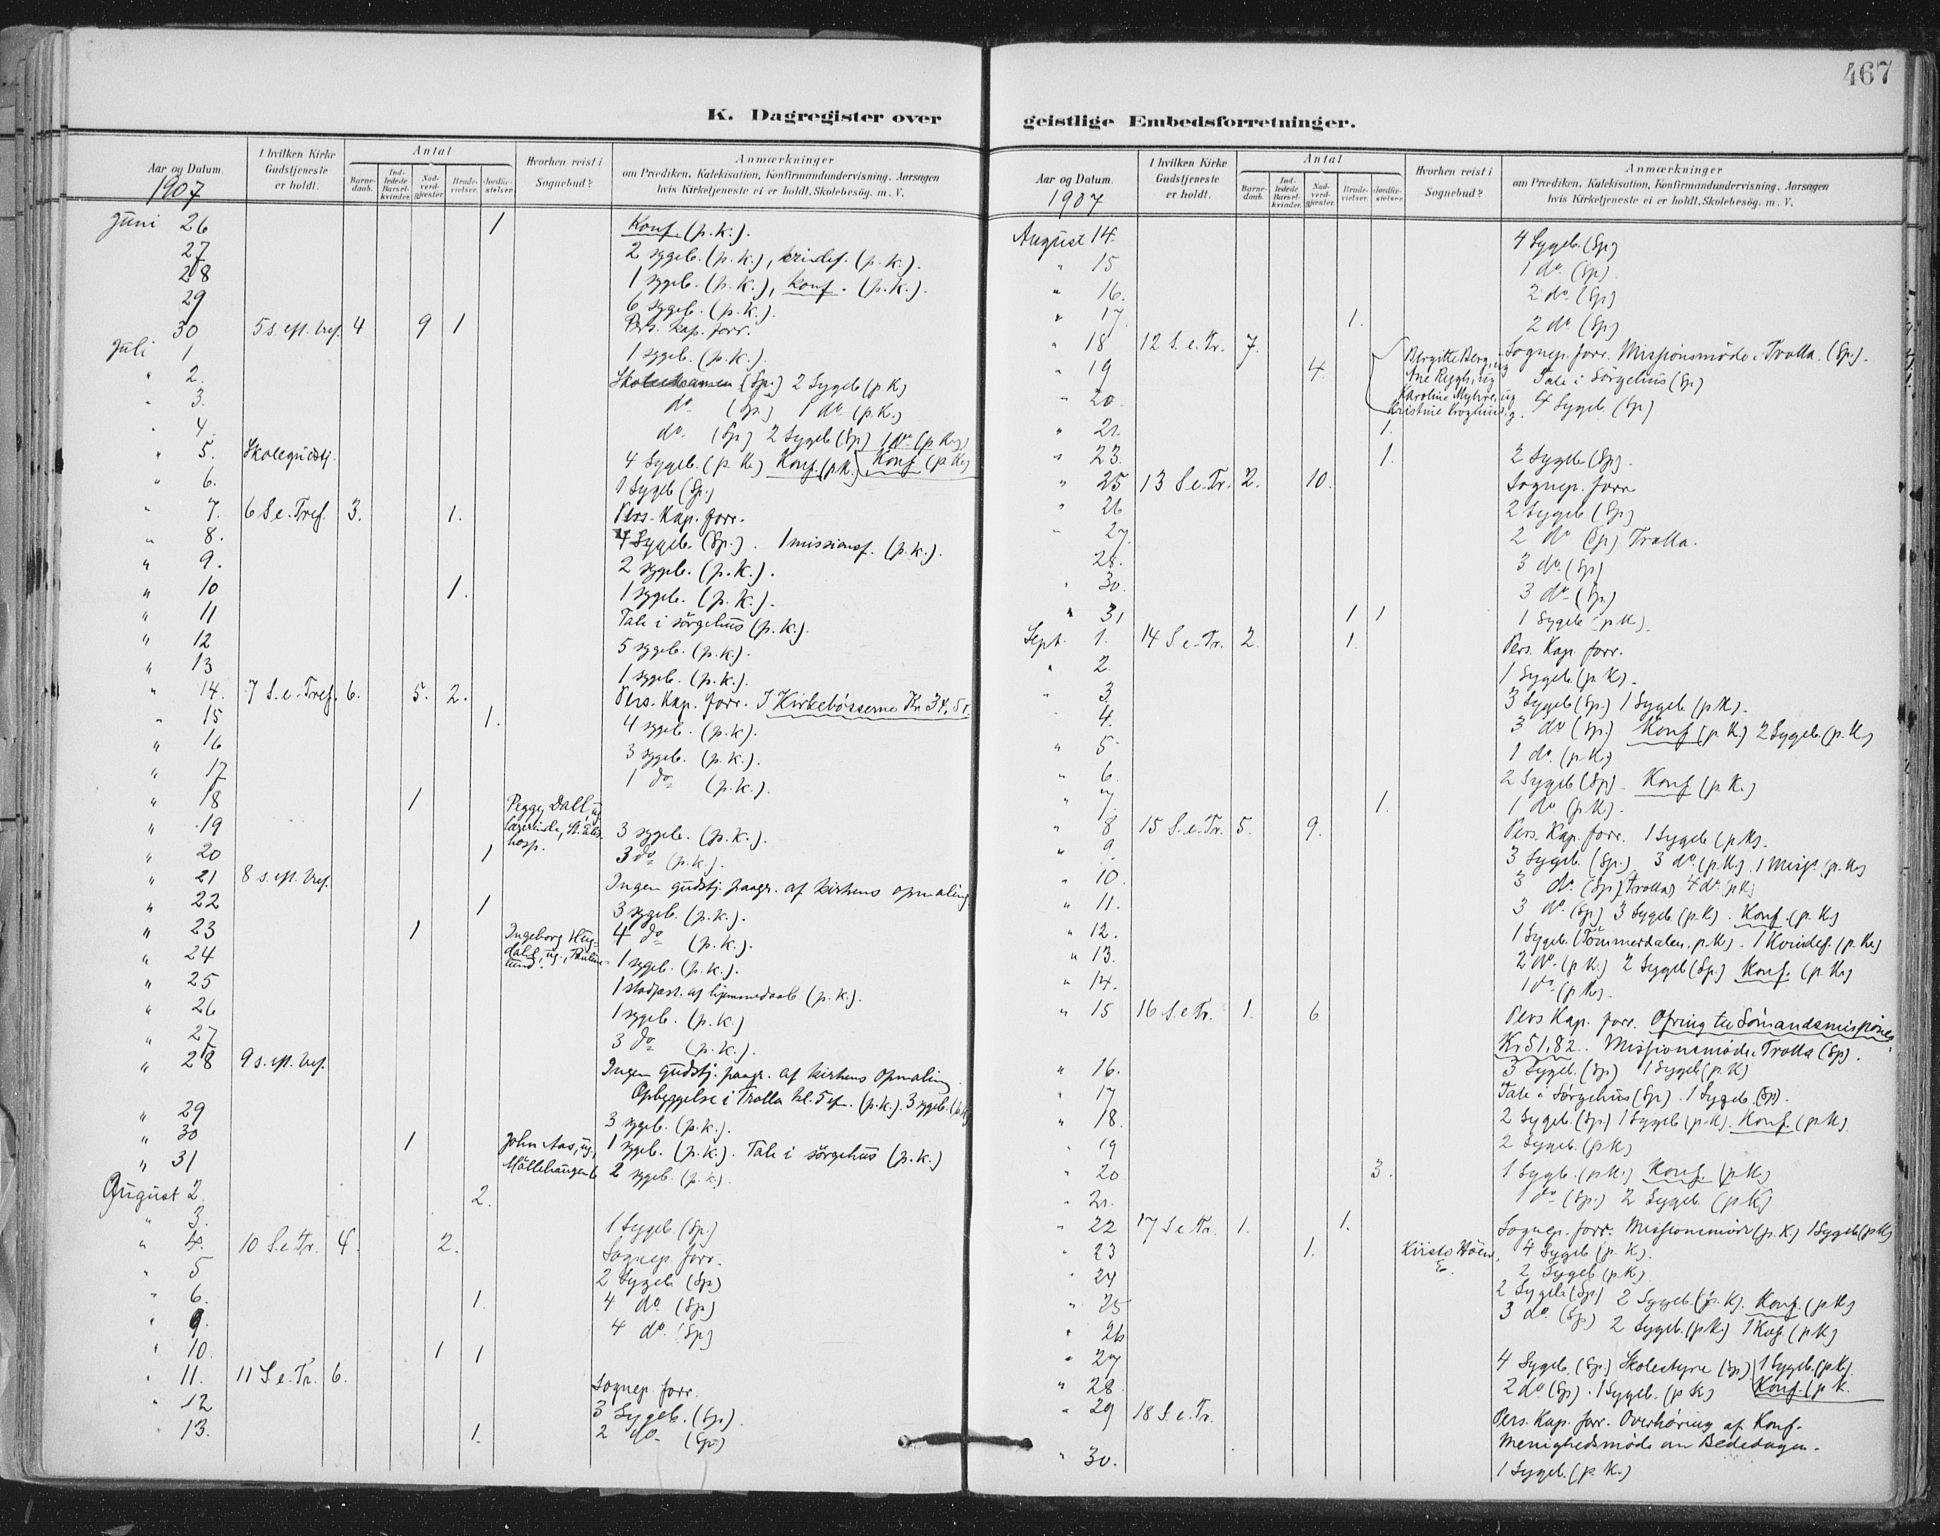 467
K. Dagregister over
Aar og Datum.
I hvilken Kirke Gudstjeneste er holdt.
Antal
Barne-daab.
Ind-ledede Barsel-kvinder.
Nad-verd-gjester.
Brude-vielser.
Jordfæ-stelser.
Hvorhen reist i Sognebud?
Anmærkninger
om Prædiken, Katekisation, Konfirmandundervisning, Aarsagen
hvis Kirketjeneste ei er holdt, Skolebesøg. m. V.
1907
Juni 26 1 Konf. (p.k.).
27 2 sygeb. (p.k.), kvindef. (p.k.).
28 1 sygeb. (p.k.), konf. (p.k.).
29 6 sygeb. (p.k.).
30 5 s. eft. tref. 4 9 1 Pers. kap. forr.
Juli 1 1 sygeb. (p.k.).
" 2. Skoleexamen (Sp.) 2 Sygeb (p K)
" 3. do (Sp) 1 do (p.K.)
" 4. do. (Sp) 2 Sygeb (Sp) 1 do (p K)
" 5. Skolegudstj. 4 Sygeb. (p. K.) Konf. (p K.) Konf. (p K)
" 6. 1 Sygeb (Sp.)
" 7. 6 S. e. Tref. 3. 1. Pers. Kap. forr.
" 8. 4 Sygeb. (Sp.). 1 missionsf. (p.k.).
" 9. 2 sygeb. (p.k.).
" 10 1. 1 sygeb. (p.k.).
" 11 Tale i sørgehus (p.k.).
" 12 5 sygeb. (p.k.).
" 13 1 sygeb. (p.k.).
" 14. 7 S. e. Tref. 6. 5. 2. Pers. Kap. forr. I Kirkebøsserne Kr 34,50
" 15 1. 4 sygeb. (p.k.).
" 16 3 sygeb. (p.k.).
" 17 1 do (p.k.).
" 18 1 Peggy Dall, ug
" 19 St. Elis. 3 sygeb. (p.k.).
hosp.
" 20 1 3 do (p.k.).
" 21 8 s. eft. tref. Ingen gudstj. paagr. af kirkens opmaling.
" 22 1 3 sygeb. (p.k.).
" 23 1 Ingeborg Hug- 4 do (p.k.).
" 24 dahl, ug., 1 sygeb. (p.k.).
" 25 1 stadfæst. af hjemmedaab (p.k.).
" 26 1 sygeb. (p.k.)
" 27 3 do (p.k.).
" 28 9 s. eft. tref. Ingen gudstj. paagr. af kirkens opmaling.
Opbyggelse i Trolla kl. 5 ef. (p.k.). 3 sygeb. (p.k.)
" 29 3 sygeb. (p.k.).
" 30 1 John Aas, ug., 1 sygeb. (p.k.). Tale i sørgehus (p.k.)
" 31 Møllehaugen 6 2 sygeb. (p.k.).
August 2. 2.
" 3. 1 Sygeb. (Sp)
" 4. 10 S. e. Tr. 4. 2. Sognep. forr.
" 5 2 Sygeb (Sp)
" 6. 1. 4 do (Sp)
" 9. 4 do. (Sp)
" 10. 1 1
" 11. 11 S. e. Tr. 6. Sognep. forr.
" 12 3 Sygeb. (Sp).
" 13. 1. 2 do (Sp)
geistlige Embedsforretninger.
Aar og Datum.
I hvilken Kirke Gudstjeneste er holdt.
Antal
Barne-daab.
Ind-ledede Barsel-kvinder.
Nad-verd-gjester.
Brude-vielser.
Jordfæ-stelser.
Hvorhen reist i Sognebud?
Anmærkninger
om Prædiken, Katekisation, Konfirmandundervisning, Aarsagen
hvis Kirketjeneste ei er holdt, Skolebesøg. m. V.
1907
August 14. 4 Sygeb. (Sp)
" 15 1 do (Sp).
" 16. 2 do (Sp)
" 17. 1. 2 do (Sp)
" 18 12 S. e. Tr. 7. Birgitte Berg, ug Sognep. forr. Missionsmøde i Trolla. (Sp).
" 19 4. Ane Rygh, ug Tale i Sørgehus (Sp)
" 20 Karoline Myhre, ug 4 Sygeb. (Sp)
" 21. 1.
" 23. 1. 2 Sygeb (Sp).
" 25 13 S. e. Tr. 2. 10. Sognep. forr
" 26 2 Sygeb (Sp)
" 27 2 do (Sp) Trolla.
28. 3 do (Sp)
" 30. 3 do (Sp)
" 31 1 1 1 Sygeb (p K).
Sept. 1. 14 S. e. Tr. 2. 1. Pers. Kap. forr.
" 2. 1 Sygeb. (p K).
" 3. 3 Sygeb (Sp.) 1 Sygeb (p K).
" 4. 3 do (Sp.) Konf (p K.) 2 Sygeb. (p. K)
" 5. 1 do. (p K)
" 6. 2 Sygeb (Sp). Konf (p K.)
" 7. 1. 1 do (p K).
" 8 15 S. e. Tr. 5. 9. Pers. Kap. forr. 1 Sygeb (p K).
" 9. 3 Sygeb. (Sp.) 3 do (p K) 1 Misf. (p K)
" 10. 3 do. (Sp) Trolla 4 do (p K)
" 11. 3 do. (Sp) 3 Sygeb (p. K). Konf. (p. K)
" 12. 1 Sygeb. (Tømmerdalen. p K). 1 Kvindef. (p. K)
" 13. 2 do. (p K) 2 Sygeb (Sp.) Konf. (p. K)
" 14. 1 do (p K).
" 15 16 S. e. Tr. 1. 6 Pers Kap. forr. Ofring til Sømandsmissionen
Kr 51,82. Missionsmøde i Trolla (Sp).
" 16. 3 Sygeb. (Sp) 1 Sygeb (p. K)
" 17 Tale i Sørgehus (Sp). 1 Sygeb. (Sp).
" 18. 2 Sygeb. (Sp) 1 Sygeb (p K). Konf. (p K)
" 19 2 Sygeb. (p K)
" 20 3. 1 Sygb. (p K.) Konf. (p K)
" 21. 1 do (Sp.) 2 Sygeb. (p K)
" 22 17 S e Tr. 1. 1. Sognep. forr. Missionsmøde (p. K) 1 Sygeb (p K)
" 23 1. 4 Sygeb (p. K).
" 24 2 Sygeb. (p K)
" 25 2 Sygeb (Sp) 2 Sygeb. (p. K). Konf. (p K)
" 26 3 do. (Sp) 2 Sygeb. (p K) 1 Kof (p K)
" 27 4 Sygeb. (Sp.) Skolestyre (Sp) 1 Sygeb. (p K).
" 28. 2 do (Sp). 1 Sygeb. (p K) Konf. (p K.
" 29 18 S. e. Tr. Pers. Kap. forr. Overhøring af Konf.
Menighedsmøde om Bededagen.
" 30. 1 Sygeb. (p. K.)